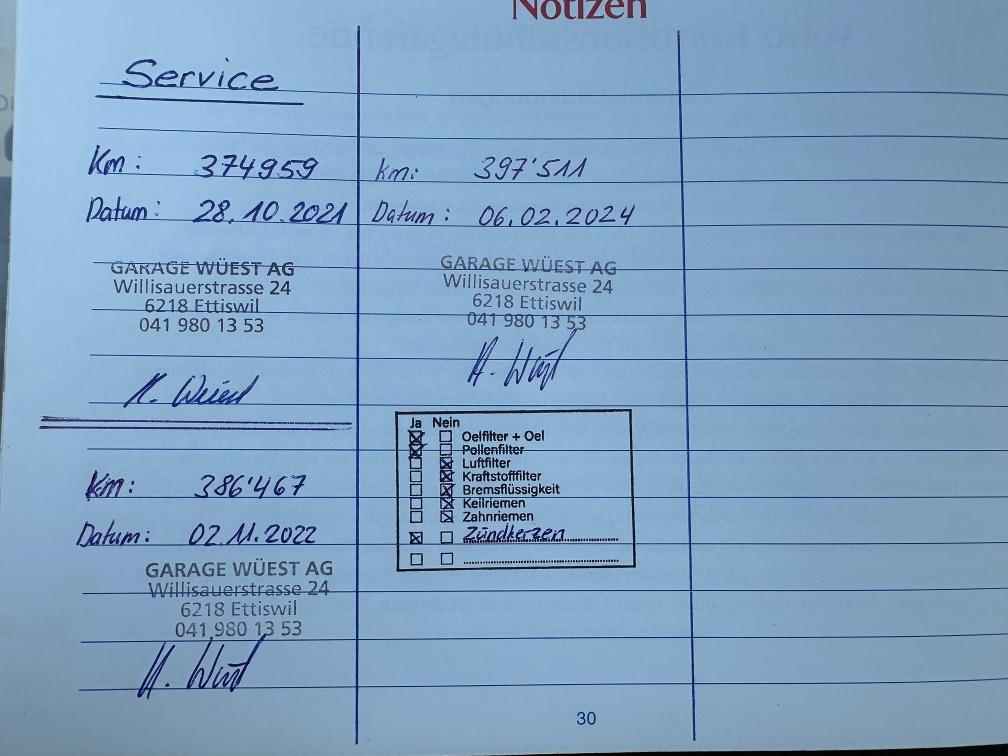 Notizen
Service
Km: 374959
Datum: 28.10.2021
GARAGE WÜEST AG
Willisauerstrasse 24
6218 Ettiswil
041 980 13 53
Km: 386'467
Datum: 02.11.2022
GARAGE WÜEST AG
Willisauerstrasse 24
6218 Ettiswil
041 980 13 53
Km: 397'511
Datum: 06.02.2024
GARAGE WÜEST AG
Willisauerstrasse 24
6218 Ettiswil
041 980 13 53
Ja Nein
Oelfilter + Oel
Pollenfilter
Luftfilter
Kraftstofffilter
Bremsflüssigkeit
Keilriemen
Zahnriemen
Zündkerzen
30